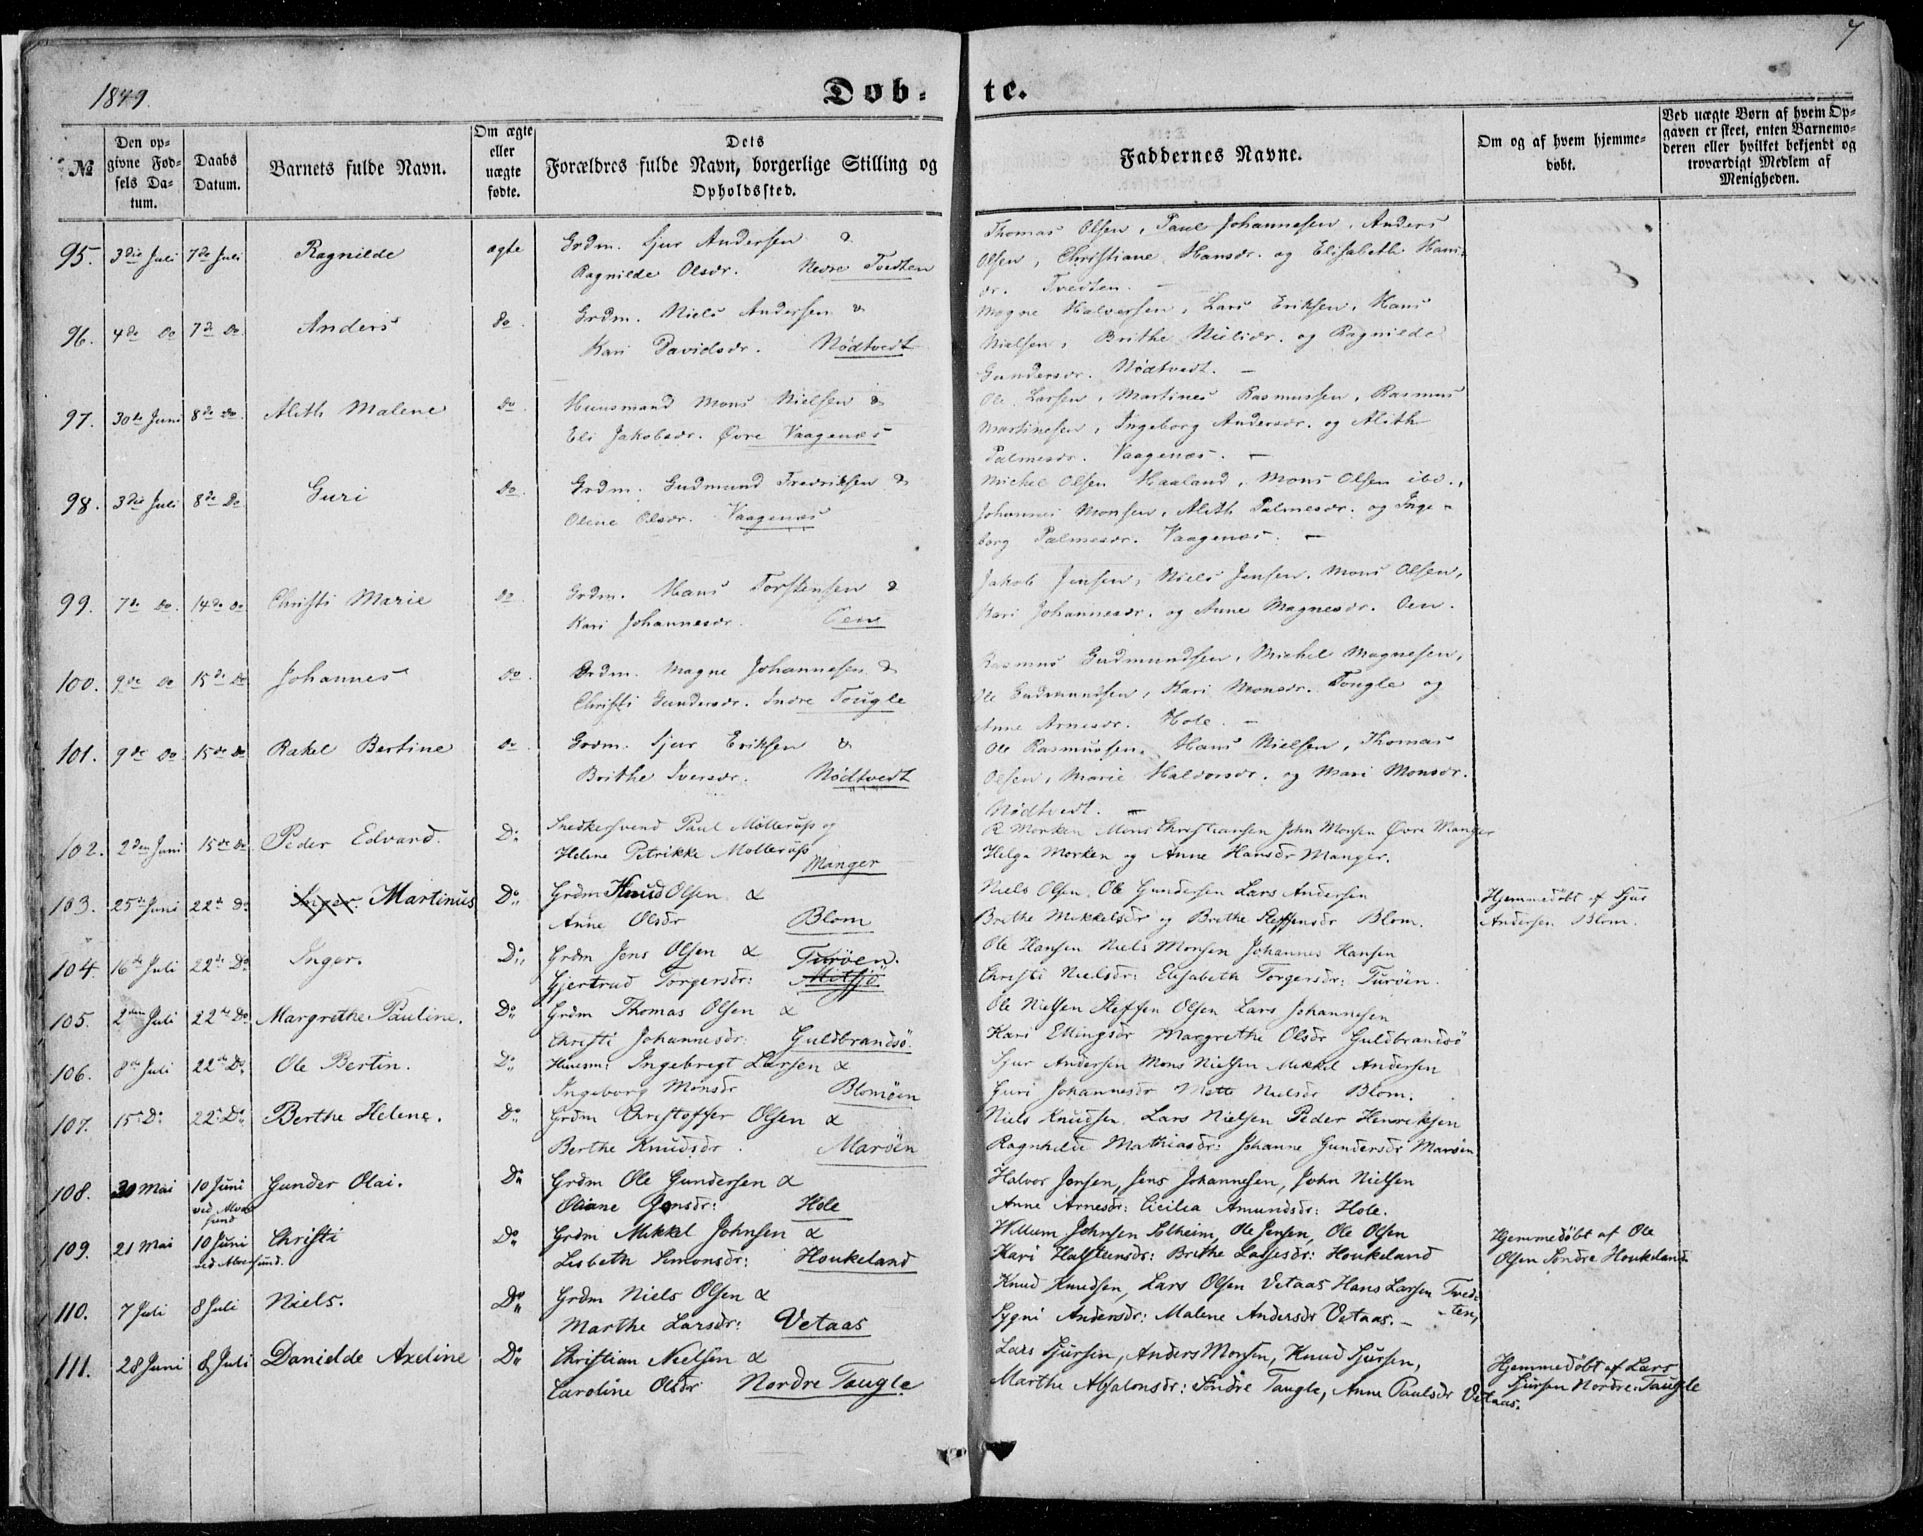 7
1849.
Døb-te.
№
Den opgivne Fødsels Datum.
Daabs Datum.
Barnets fulde Navn.
Om ægte eller uægte fødte.
Dets Forældres fulde Navn, borgerlige Stilling og Opholdssted.
Faddernes Navne.
Om og af hvem hjemmedøbt.
Ved uægte Børn af hvem Opgaven er skeet, enten Barnemoderen eller hvilket bekjendt og troværdigt Medlem af Menigheden.
95. 3die Juli 7de Juli Ragnilde ægte Grdm. Sjur Andersen &
Ragnilde Olsdr. Nedre Tvedten
Thomas Olsen, Paul Johannesen, Anders
Olsen, Christiane Hansdr. og Elisabeth Hans-
dr. Tvedten. —
96. 4de Do 7de Do Anders Do Grdm. Niels Andersen &
Kari Davidsdr. Nödtvedt
Magne Halversen, Lars Eriksen, Hans
Nielsen, Brithe Nielsdr. og Ragnilde
Gundersdr. Nödtvedt. —
97. 30te Juni 8de Do. Alith Malene Do Huusmand Mons Nielsen &
Eli Jakobsdr. Øvre Vaagenæs
Ole Larsen, Martines Rasmussen, Rasmus
Martinesen, Ingeborg Andersdr. og Alith
Palmesdr. Vaagenæs. —
98. 3die Juli 8de Do Guri Do Grdm. Gudmund Fredriksen &
Oline Olsdr. Vaagenæs
Michel Olsen Haaland, Mons Olsen ibd.,
Johannes Monsen, Alith Palmesdr. og Inge-
borg Palmesdr. Vaagenæs. —
99. 7de Do. 14de Do Christi Marie Do Grdm. Hans Torstensen &
Kari Johannesdr. Oen
Jakob Jensen, Niels Jensen, Mons Olsen,
Kari Johannesdr. og Anne Magnesdr. Oen.
100. 9de Do 15de Do Johannes Do. Grdm. Magne Johannesen &
Christi Gundersdr. Indre Tougle
Rasmus Gudmundsen, Michel Magnesen,
Ole Gudmundsen, Kari Monsdr. Tougle og
Anne Arnesdr. Hole. —
101. 9de Do 15de Do Rakel Bertine Do Grdm. Sjur Eriksen &
Brithe Iversdr. Nödtvedt
Ole Rasmussen, Hans Nielsen, Thomas
Olsen, Marie Halvorsdr. og Mari Monsdr.
Nödtvedt. —
102. 2den Juni 15de Do Peder Edvard. Do Snedkersvend Paul Mollerup og
Helene Petrikke Mollerup
Manger
R Morken Mons Christiansen John Monsen Øvre Manger
Helga Morken og Anne Hansdr Manger.
103. 25de Juni 22de Do Inger. Martinus Do Grdm Knud Olsen &
Anne Olsdr Blom
Niels Olsen, Ole Gundersen Lars Andersen
Brethe Mikkelsdr og Brethe Steffensdr Blom.
Hjemmedøbt af Sjur
Andersen Blom.
104. 16de Juli 22de Do. Inger. Do Grdm Jens Olsen & Turöen.
Gjertrud Torgersdr:
Ole Hansen Niels Monsen Johannes Hansen
Christi Nielsdr: Elisabeth Torgersdr: Turöen.
105. 2den Juli 22de Do Margrethe Pauline. Do Grdm Thomas Olsen &
Christi Johannesdr: Guldbrandsö.
Ole Nielsen Steffen Olsen Lars Johannesen
Kari Ellingsdr Margrethe Olsdr Guldbrandsö
106. 8de Juli 22de Do Ole Bertin. Do Huusm: Ingebregt Larsen &
Ingeborg Monsdr Blomöen
Sjur Andersen Mons Nielsen Mikkel Andersen
Guri Johannesdr Mette Nielsdr Blom.
107. 15de Do 22de Do Berthe Helene. Do Grdm Christoffer Olsen &
Berthe Knudsdr. Maröen
Niels Knudsen, Lars Nielsen Peder Henriksen
Ragnhilde Mathiasdr: Johanne Gundersdr Maröen
108. 30 Mai 10 Juni ved Alver-sund Gunder Olai. Do Grdm Ole Gundersen &
Oliane Jonsdr: Hole
Halvor Jensen, Jens Johannesen, John Nielsen
Anne Arnesdr: Cicilia Amundsdr: Hole.
109. 21 Mai 10 Juni ved Alversund. Christi Do Grdm Mikkel Johnsen &
Lisbeth Simonsdr: Houkeland
Willum Johnsen Solheim, Ole Jensen, Ole Olsen
Kari Halstensdr: Brithe Larsdr: Houkeland
Hjemmedøbt af Ole
Olsen Søndre Houkeland.
110. 7 Juli 8 Juli Niels. Do Grdm Niels Olsen &
Marthe Larsdr: Vetaas
Knud Knudsen, Lars Olsen Vetaas Hans Larsen Tved-
ten,
Sygni Andersdr: Malene Andersdr Vetaas. —
111. 28 Juni 8 Juli Danielde Axeline Do Christian Nielsen &
Caroline Olsdr Nordre Taugle
Lars Sjursen, Anders Monsen, Knud Sjursen,
Marthe Absalonsdr: Søndre Taugle, Anne Paulsdr Vetaas.
Hjemmedøbt af Lars
Sjursen Nordre Taugle